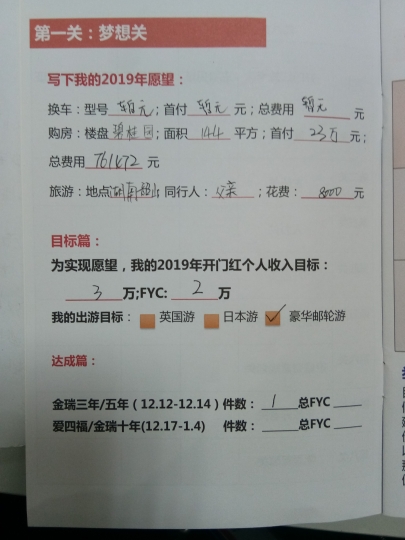 第一关：梦想关
写下我的2019年愿望：
换车：型号 暂无；首付 暂无 元；总费用 暂无 元
购房：楼盘 碧桂园；面积 144 平方；首付 23万 元；
总费用 761472 元
旅游：地点 湖南韶山 同行人：父亲；花费： 8000 元
目标篇：
为实现愿望，我的2019年开门红个人收入目标：
3 万;FYC: 2 万
我的出游目标： 英国游 日本游 ✓ 豪华邮轮游
达成篇：
金瑞三年/五年（12.12-12.14）件数： 1 总FYC
爱四福/金瑞十年(12.17-1.4) 件数： 总FYC